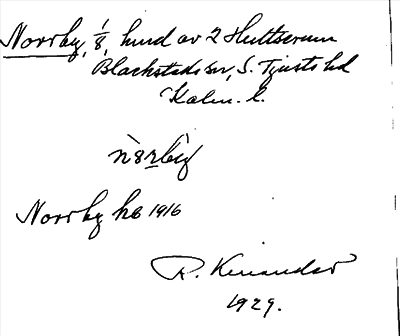 Norrby, 1/8, hmd av 2 Hultserum
Blackstads sn, S. Tjusts hd
Kalm. l.
Norrby hb 1916
R. Kenander
1929.